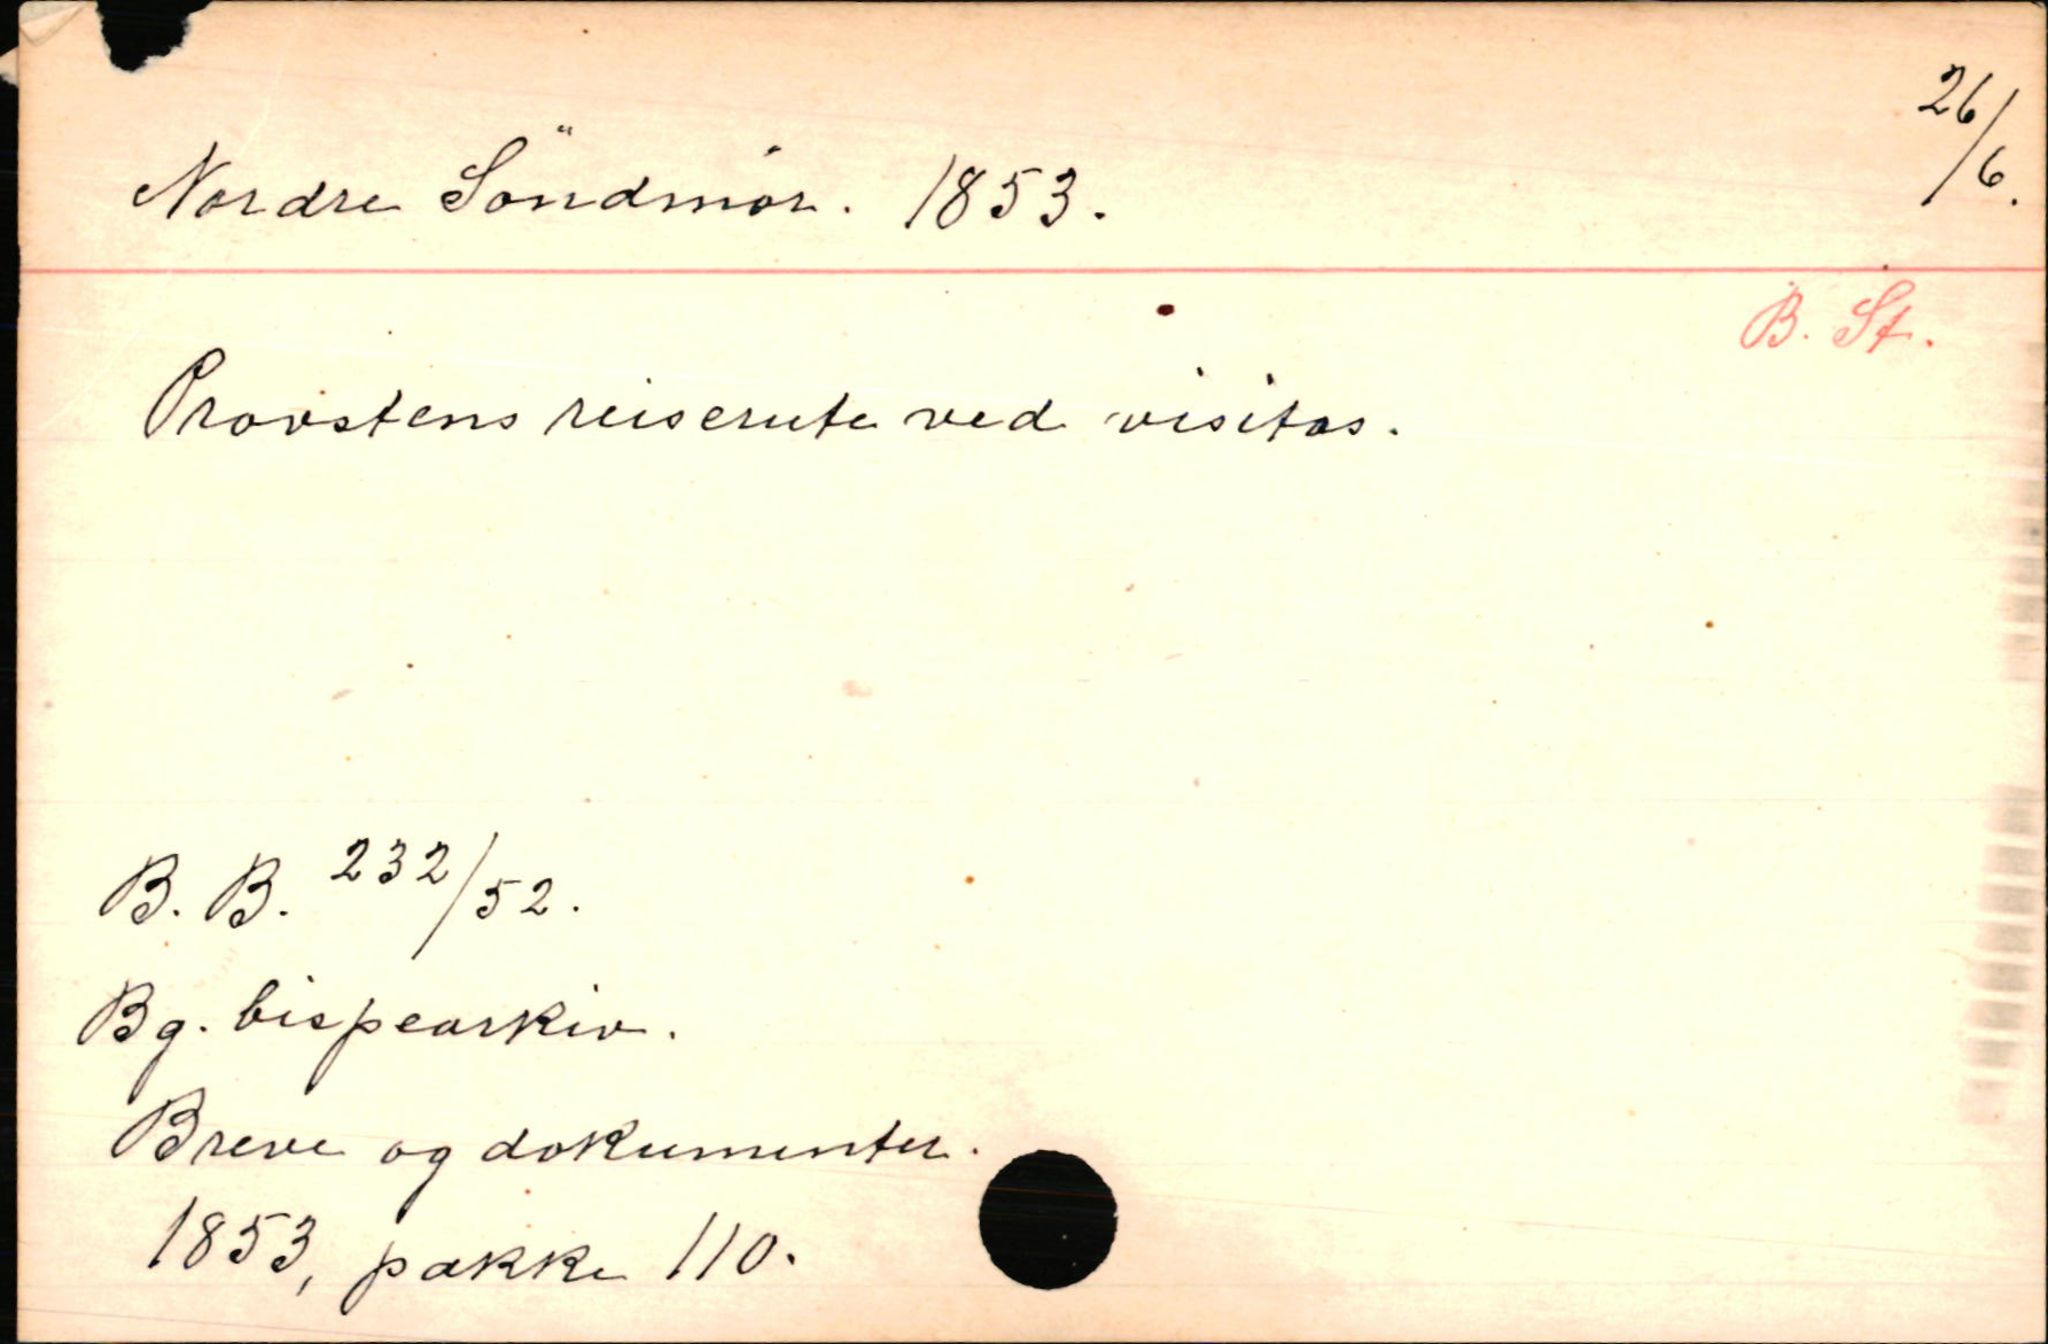 26/6.
Nordre Söndmör. 1853.
B. St.
Provstens reiserute ved visitas.
B. B. 232/52.
Bg. bispearkiv.
Breve og dokumenter.
1853, pakke 110.